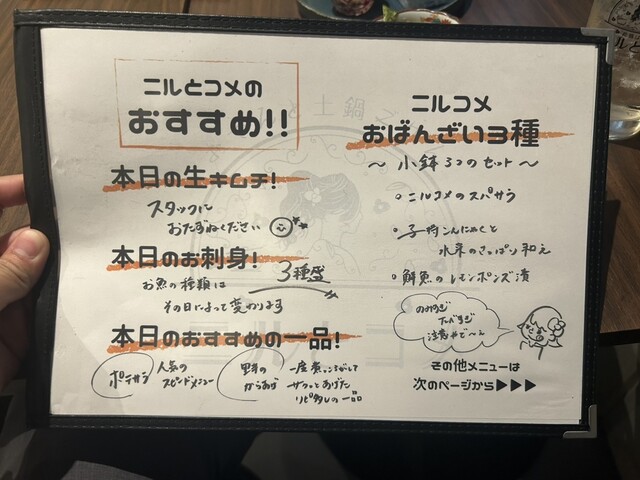 ニルとコメの
おすすめ!!
本日の生キムチ!
スタッフに
おたずねください
本日のお刺身!
3種盛
お魚の種類は
その日によって変わります
本日のおすすめの一品!
ポテサラ
人気の
スピードメニュー
野菜の
からあげ
一度煮
サクッとあげた
リピ多しの一品
ニルコメ
おばんざい3種
〜小鉢3つのセット〜
・ニルコメのスパサラ
・子持こんにゃくと
水菜のさっぱり和え
・鮮魚のレモンポンズ漬
のみすぎ
たべすぎ
注意やで〜
その他メニューは
次のページから▶▶▶